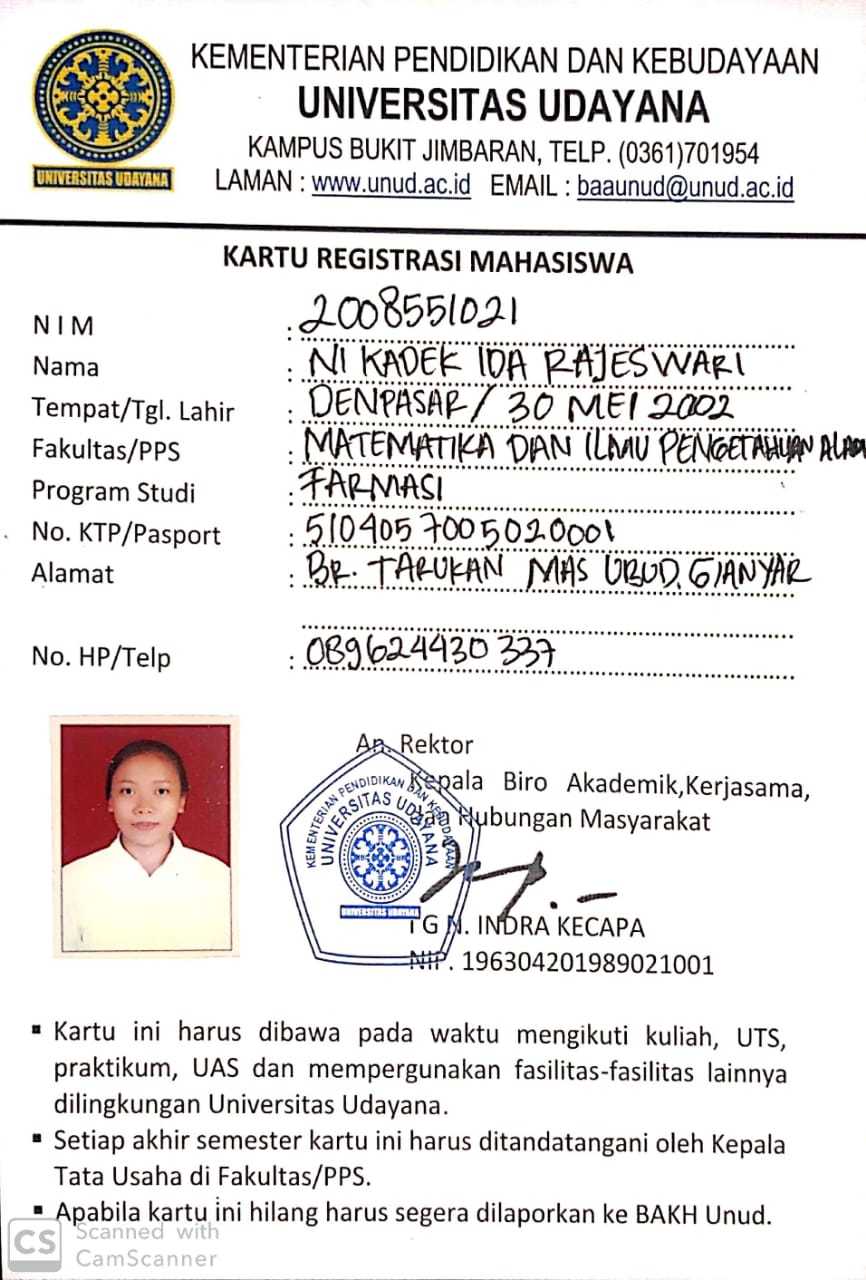 KEMENTERIAN PENDIDIKAN DAN KEBUDAYAAN
UNIVERSITAS UDAYANA
KAMPUS BUKIT JIMBARAN, TELP. (0361)701954
LAMAN : www.unud.ac.id EMAIL : baaunud@unud.ac.id
UNIVERSITAS UDAYANA
KARTU REGISTRASI MAHASISWA
N I M : 2008551021
Nama : NI KADEK IDA RAJESWARI
Tempat/Tgl. Lahir : DENPASAR / 30 MEI 2002
Fakultas/PPS : MATEMATIKA DAN ILMU PENGETAHUAN ALAM
Program Studi : FARMASI
No. KTP/Pasport : 5104057005020001
Alamat : BR. TARUKAN MAS UBUD, GIANYAR
No. HP/Telp : 089624430337
An. Rektor
Kepala Biro Akademik,Kerjasama,
Dan Hubungan Masyarakat
KEMENTERIAN PENDIDIKAN DAN KEBUDAYAAN
UNIVERSITAS UDAYANA
UNIVERSITAS UDAYANA
I G N. INDRA KECAPA
NIP. 196304201989021001
▪ Kartu ini harus dibawa pada waktu mengikuti kuliah, UTS,
praktikum, UAS dan mempergunakan fasilitas-fasilitas lainnya
dilingkungan Universitas Udayana.
▪ Setiap akhir semester kartu ini harus ditandatangani oleh Kepala
Tata Usaha di Fakultas/PPS.
▪ Apabila kartu ini hilang harus segera dilaporkan ke BAKH Unud.
CS Scanned with
CamScanner